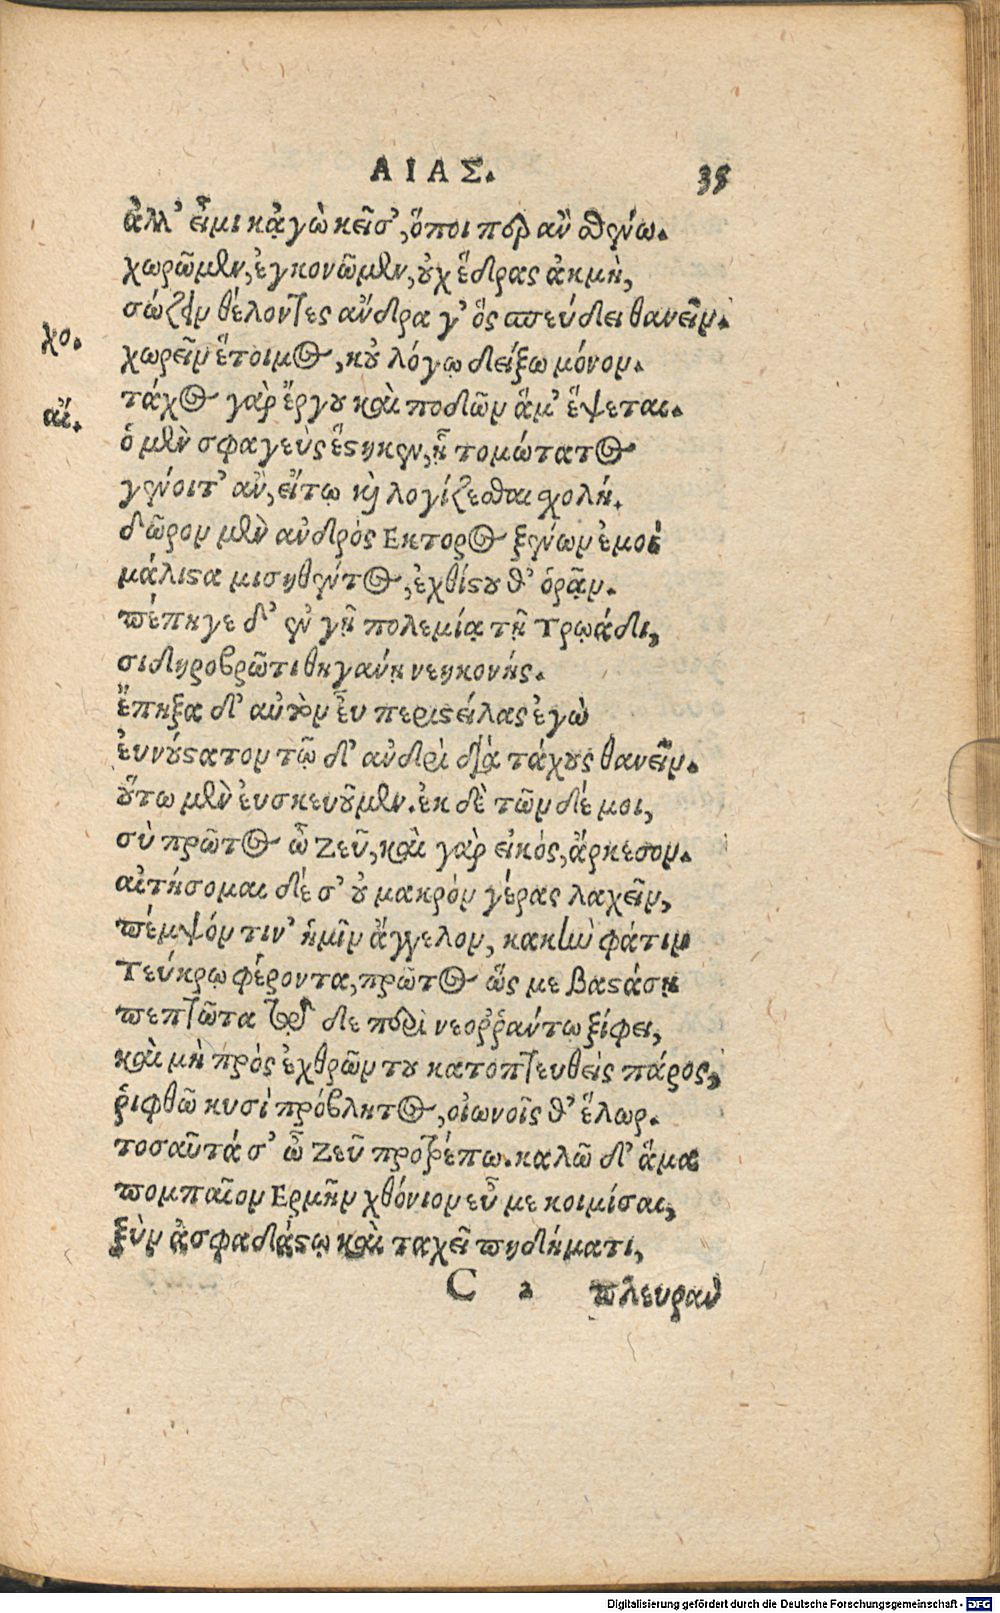 ΑΙΑΣ. 35
ἀλλ' εἶμι κᾀγὼ κεῖσ', ὅποι περ ἂν σθένω.
χωρῶμεν, ἐγκονῶμεν, οὐχ ἕδρας ἀκμὴ,
σώζειν θέλοντες ἄνδρα γ' ὃς σπεύδει θανεῖν.
χο. χωρεῖν ἕτοιμος, κοὐ λόγῳ δείξω μόνον.
τάχος γὰρ ἔργου καὶ ποδῶν ἅμ' ἕψεται.
αἴ. ὁ μὲν σφαγεὺς ἕστηκεν, ᾗ τομώτατος
γένοιτ' ἂν, εἴ τῳ καὶ λογίζεσθαι σχολή.
δῶρον μὲν ἀνδρὸς Εκτορος ξένων ἐμοὶ
μάλιστα μισηθέντος, ἐχθίστου θ' ὁρᾷν.
πέπηγε δ' ἐν γῇ πολεμίᾳ τῇ Τρῳάδι,
σιδηροβρῶτι θηγάνῃ νεηκονής.
ἔπηξα δ' αὐτὸν εὖ περιστείλας ἐγὼ
εὐνούστατον τῷ δ' ἀνδρὶ διὰ τάχους θανεῖν.
οὕτω μὲν εὐσκευοῦμεν. ἐκ δὲ τῶν δέ μοι,
σὺ πρῶτος ὦ Ζεῦ, καὶ γὰρ εἰκός, ἄρκεσον.
αἰτήσομαι δέ σ' οὐ μακρὸν γέρας λαχεῖν,
πέμψόν τιν' ἡμῖν ἄγγελον, κακὴν φάτιν
Τεύκρῳ φέροντα, πρῶτος ὥς με βαστάσῃ
πεπτῶτα τῷδε περὶ νεορῤῥάντῳ ξίφει,
καὶ μὴ πρὸς ἐχθρῶν του κατοπτευθεὶς πάρος,
ῥιφθῶ κυσὶ πρόβλητος, οἰωνοῖς θ' ἕλωρ.
τοσαῦτά σ' ὦ Ζεῦ προτρέπω. καλῶ δ' ἅμα
πομπαῖον Ερμῆν χθόνιον εὖ με κοιμίσαι,
ξὺν ἀσφαδάστῳ καὶ ταχεῖ πηδήματι,
C 2 πλευραν
Digitalisierung gefördert durch die Deutsche Forschungsgemeinschaft - DFG